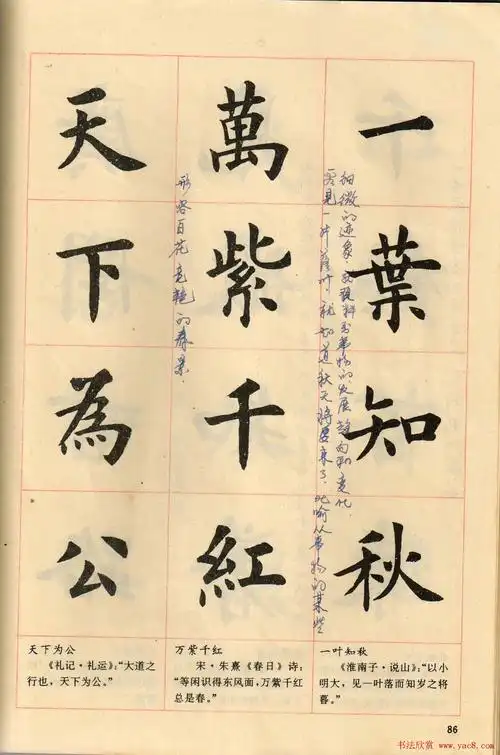 一葉知秋
萬紫千紅
天下為公
看见一片落叶,就知道秋天将要来了。比喻从事物的某些
细微的迹象,就预料到事物的发展趋向和变化。
形容百花竞艳的春景.
天下为公
《礼记·礼运》:“大道之
行也,天下为公。”
万紫千红
宋·朱熹《春日》诗:
“等闲识得东风面,万紫千红
总是春。”
一叶知秋
《淮南子·说山》:“以小
明大,见一叶落而知岁之将
暮。”
86
书法欣赏
www.yac8.com